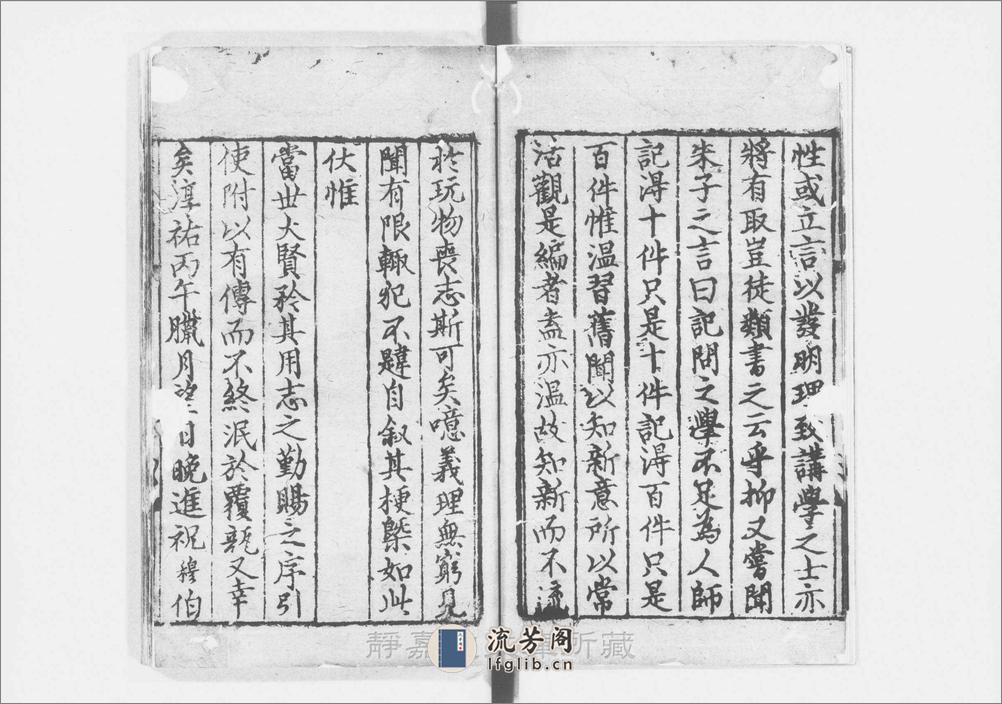 性或立言以發明理致講學之士亦
將有取豈徒類書之云乎抑又嘗聞
朱子之言曰記問之學不足為人師
記得十件只是十件記得百件只是
百件惟溫習舊聞以知新意所以常
活觀是編者盍亦溫故知新而不流
於玩物喪志斯可矣噫義理無窮見
聞有限輙犯不韙自叙其梗槩如此
伏惟
當世大賢矜其用志之勤賜之序引
使附以有傳而不終泯於覆瓿又幸
矣淳祐丙午臘月望日晚進祝穆伯
靜嘉 所藏
流芳阁
lfglib.cn